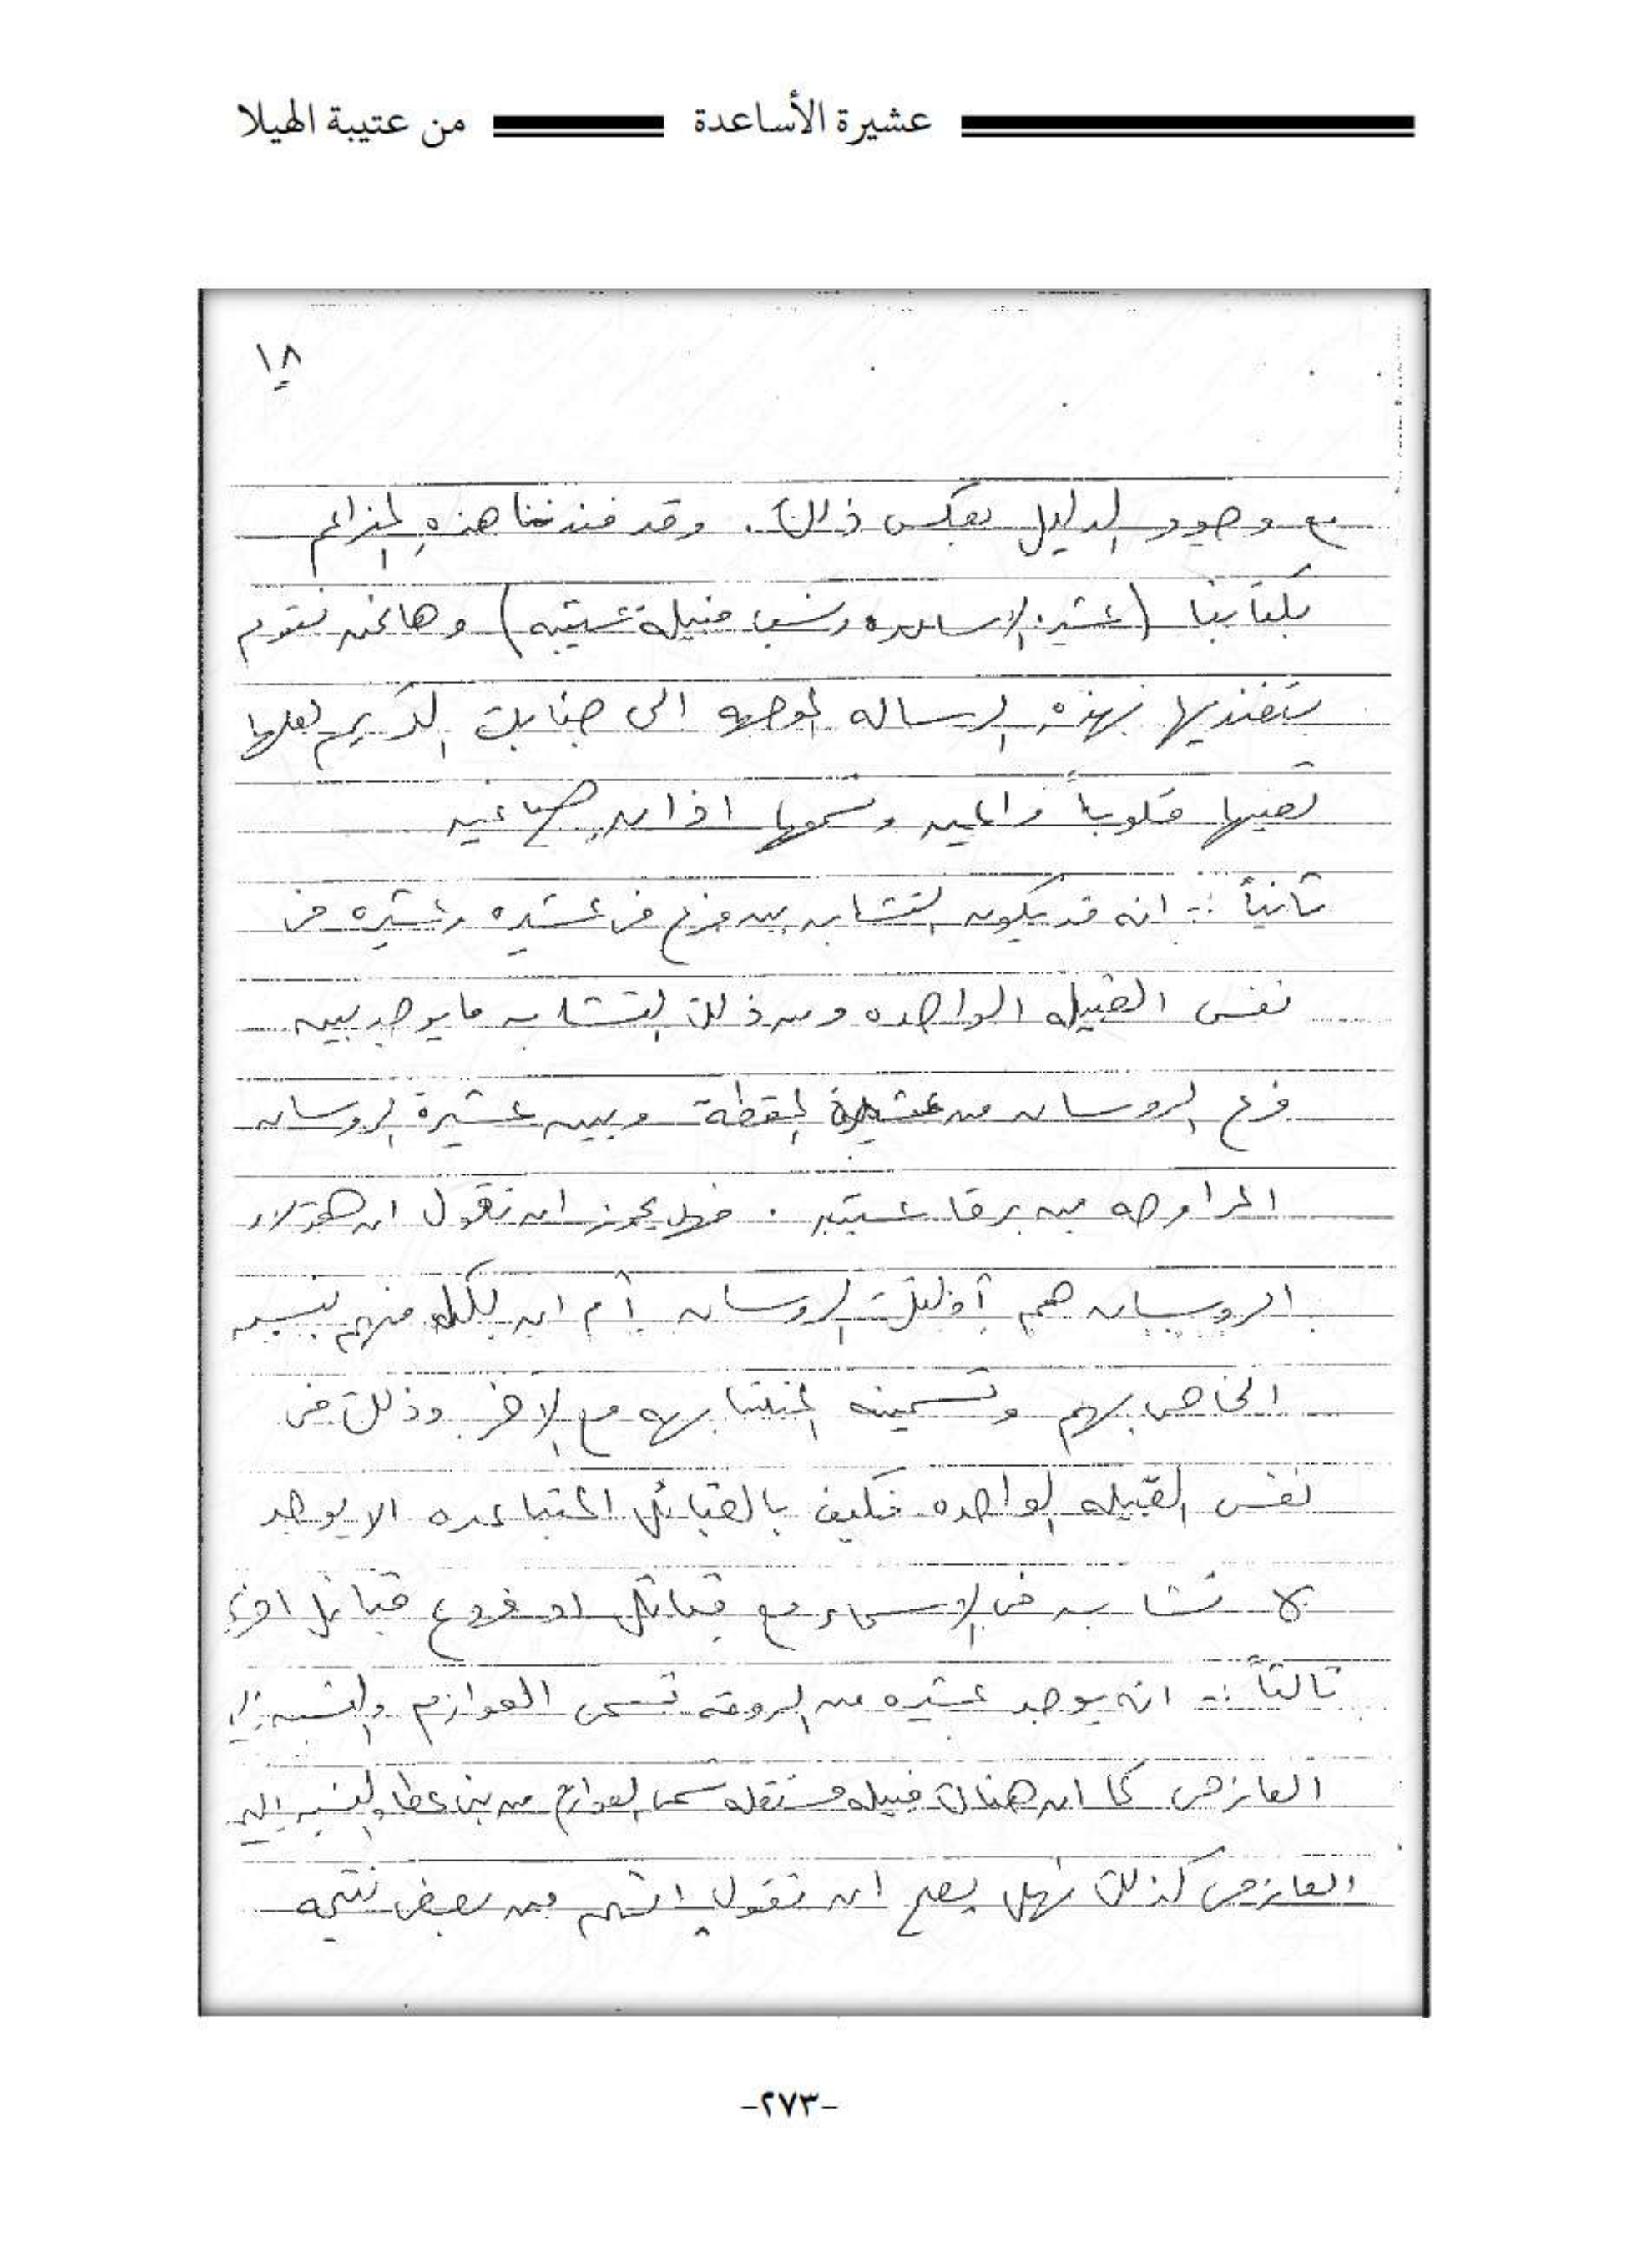 عشيرة الأساعدة من عتيبة الهيلا
١٨
مع وجود الدليل بعكس ذالك. وقد فندنا هذهِ المزاعم
بكتابنا (عشيرة الاساعده ونسب قبيلة عتيبه) وها نحن نقوم
بتفنديها بهذه الرساله الموجهه الى جنابك الكريم لعلها
تعيها قلوباً واعيه وتسمعها اذان صاغيه
ثانياً :- انه قد يكون التشابه بين فرع في عشيره وعشيره في
نفس القبيله الواحده ومن ذلك التشابه مايوجد بين
فرع الروسان من عشيرة المقطة وبين عشيرة الروسان
المراوحه من برقا عتيبه . فهل يجوز ان نقول ان هؤلاء
الروسان هم أولئك الروسان أم ان لكل منهم نسبه
الخاص بهم وتسميته المتشابهه مع الاخر وذلك في
نفس القبيله الواحده فكيف بالقبائل المتباعده الا يوجد
بها تشابه في الاسماء مع قبائل او فروع قبائل اخرى
ثالثاً :- انه يوجد عشيره من الروقه تسمى العوازم والنسبه لها
العازمي كما ان هناك قبيله مستقله تسمى العوازم من بني عطا والنسبه اليه
العازمي كذلك فهل يصح ان نقول انهم من بعض نتيجه
-٢٧٣-